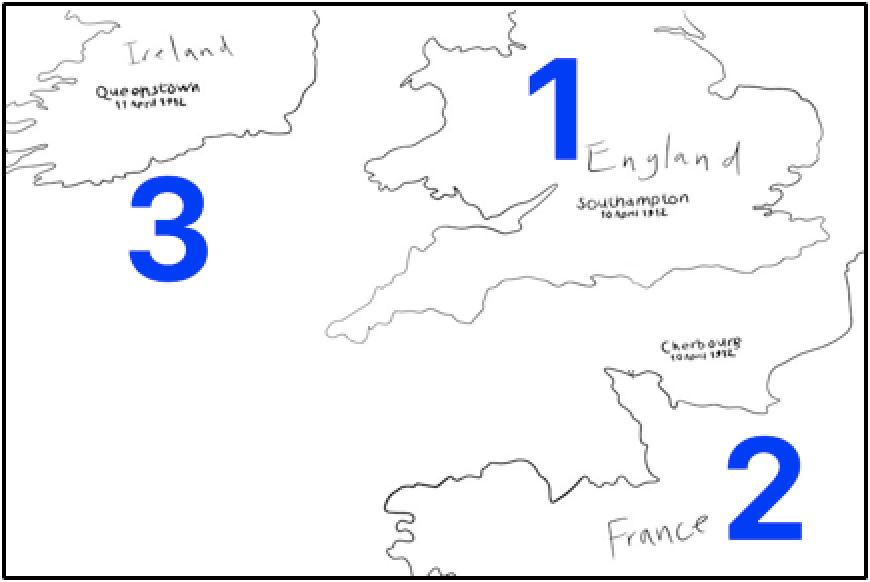 Ireland
Queenstown
11 April 1912
3
1
England
Southampton
10 April 1912
Cherbourg
10 April 1912
2
France